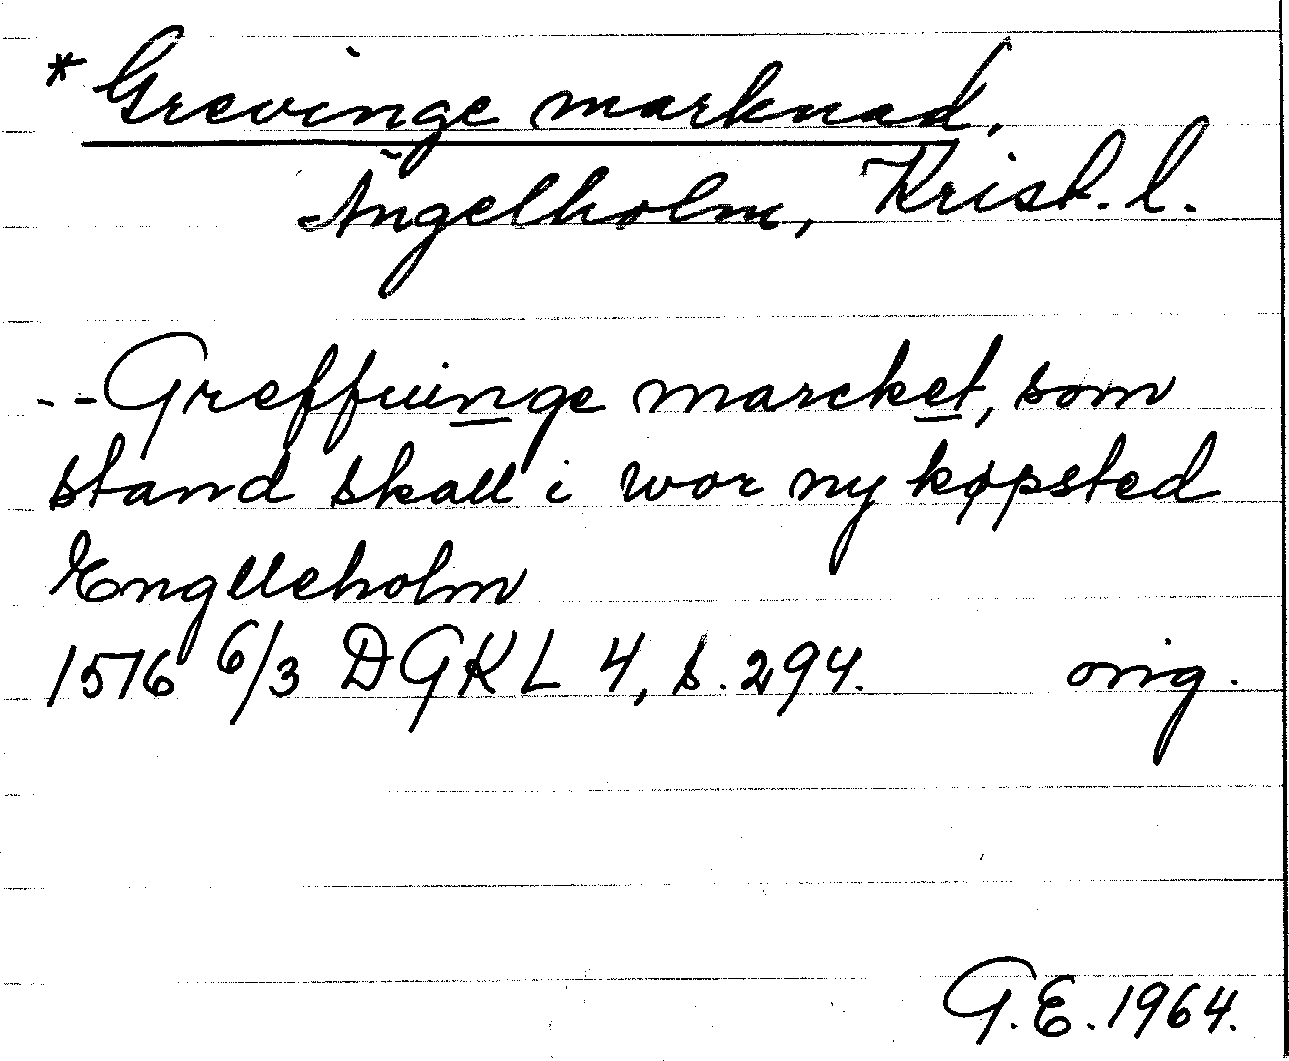 * Grevinge marknad.
Ängelholm, Krist. l.
-- Greffuinge marcket, som
stand skall i wor ny køpsted
Englleholm
1576 6/3 DGKL 4, s. 294. orig.
G.E. 1964.